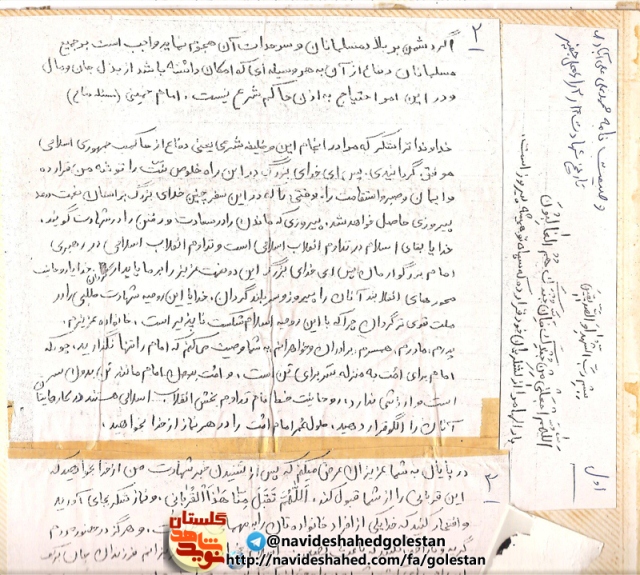 ۲
اگر دشمن بر بلاد مسلمانان و سرحدات آن هجوم نماید واجب است بر جمیع
مسلمانان دفاع از آن به هر وسیله ای که امکان داشته باشد از بذل جان و مال
و در این امر احتیاج به اذن حاکم شرع نیست. امام خمینی
خداوندا ترا متشکر که مرا در انجام این وظیفه شرعی یعنی دفاع از حاکمیت جمهوری اسلامی
موفق گردانیدی. پس ای خدای بزرگ در این راه خلوص نیت را توشه من قرار ده
و ایمان و صبر و استقامت را
پیروزی حاصل خواهد شد، پیروزی که ماندن را در سعادت و رفتن را در شهادت گویند.
خدایا بقای اسلام در تداوم انقلاب اسلامی است و تداوم انقلاب اسلامی در رهبری
امام بزرگوارمان پس ای خدای بزرگ این دو نعمت عزیز را بر ما پایدار گردان
را پیروز و سربلند گردان، خدایا این روحیه شهادت طلبی را در
ملت قوی تر گردان چرا که با این روحیه اسلام شکست ناپذیر است. خانواده عزیزم
پدرم، مادرم، همسرم، برادران و خواهرانم به شما وصیت می کنم که امام را تنها نگذارید، چون که
امام برای امت به منزله سر برای تن است، و امت بدون امام مانند تن بدون سر
است و ارزشی ندارد، روحانیت ضامن تداوم بخش انقلاب اسلامی هستند در کارهایتان
آنان را الگو قرار دهید، طول عمر امام امت را در هر نماز از خدا بخواهید.
۳
در پایان به شما عزیزان عرض میکنم که پس از شنیدن خبر شهادت من از خدا بخواهید که
این قربانی را از شما قبول کند. اَللّهُمَّ تَقَبَّل مِنّا هذَا القُربانی، و نماز شکر بجای آورید
و افتخار کنید که یکی از افراد خانواده تان راه
وصیت نامه
تاریخ شهادت
بسم رب الشهداء والصدیقین
اللهم اجعلنی من جندک فان جندک هم الغالبون
بارالها مرا از لشکریان خود قرار ده که سپاه تو همیشه پیروز است.
اول
گلستان
نوید شاهد
@navideshahedgolestan
http://navideshahed.com/fa/golestan